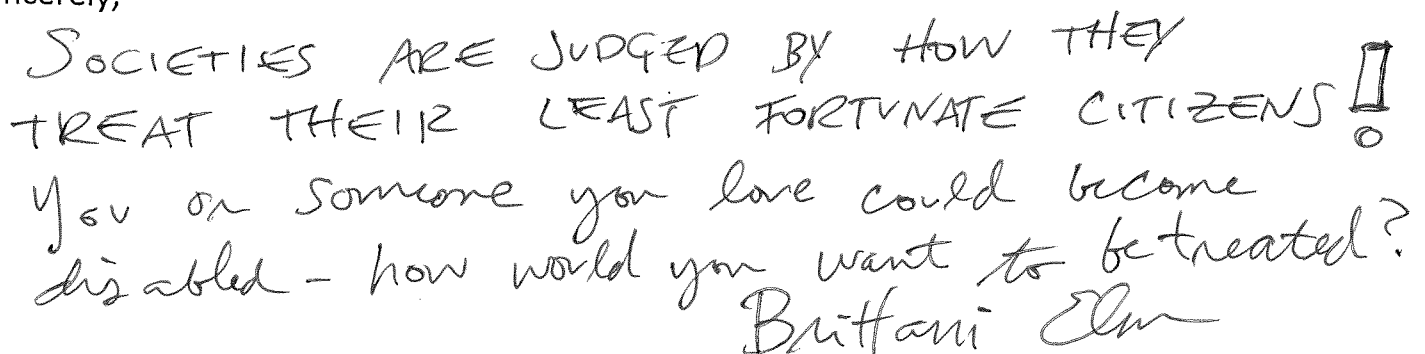 SOCIETIES ARE JUDGED BY HOW THEY
TREAT THEIR LEAST FORTUNATE CITIZENS!
You or someone you love could become
disabled - how would you want to be treated?
Brittani